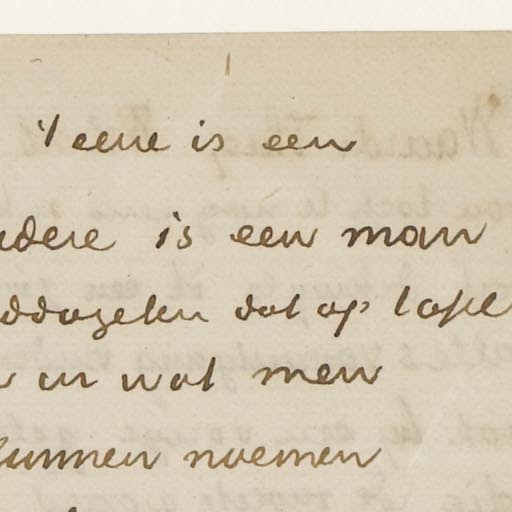 't eene is een
ndere is een man
ddageten dat op tafel
in wat men
kunnen noemen